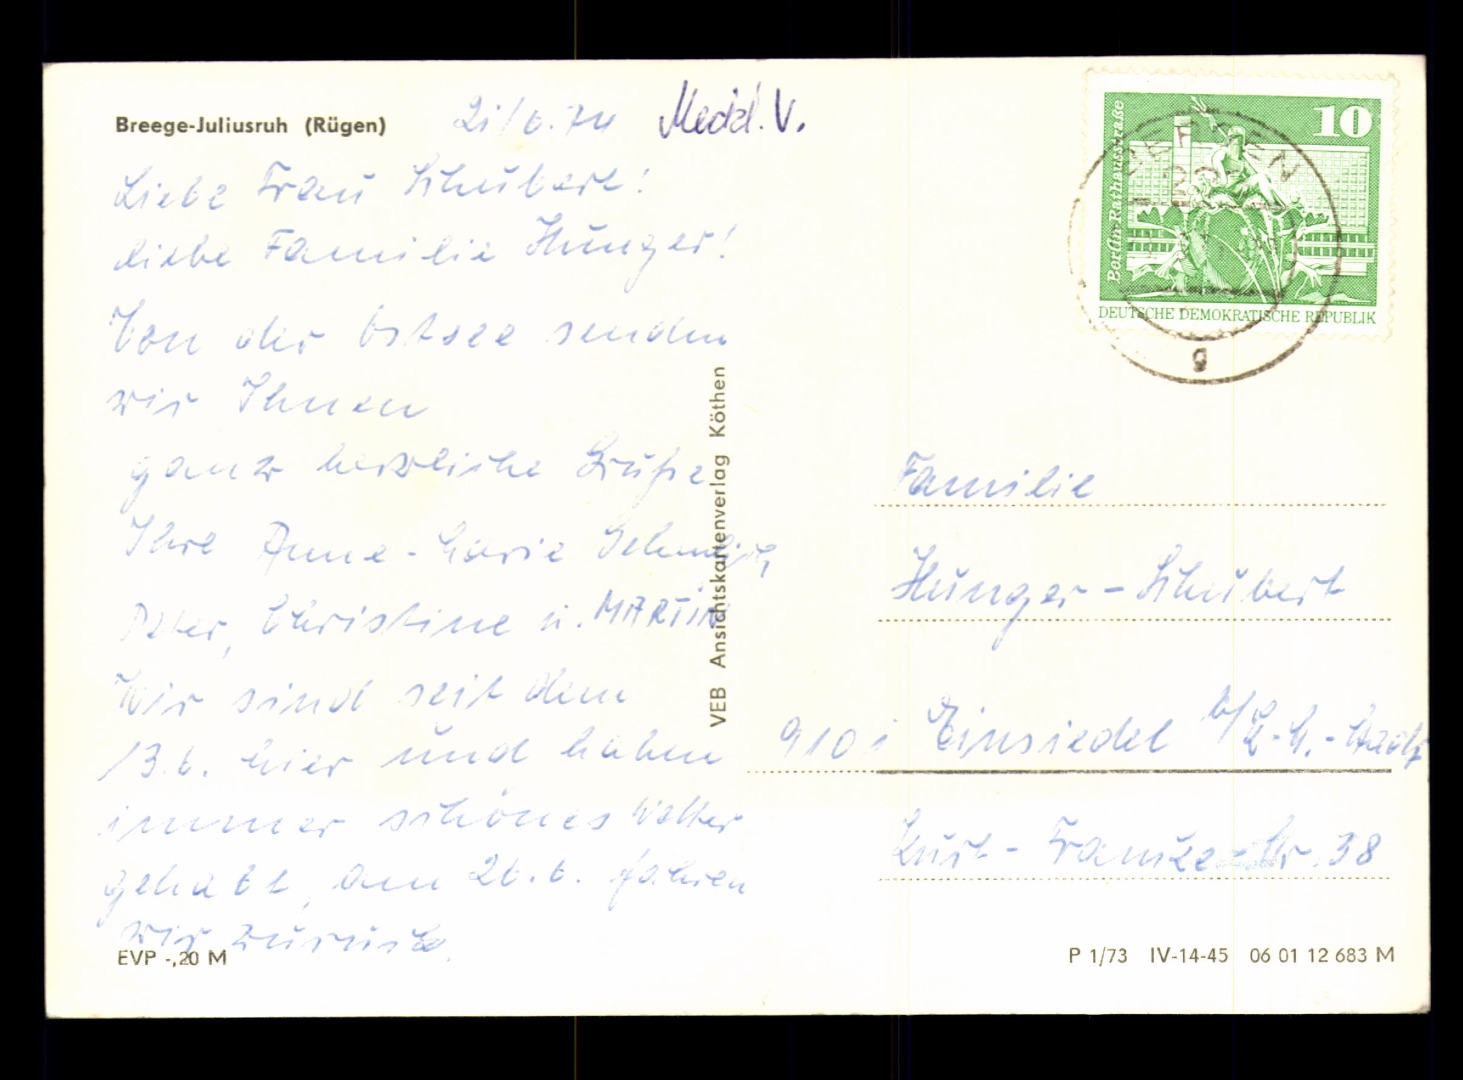 Breege-Juliusruh (Rügen)
21/6.74
Liebe Frau Schubert!
Liebe Familie Hunger!
Von der Ostsee senden
wir Ihnen
ganz herzliche Grüße
Ihre Anne-Marie
Peter, Christine u. MARTIN
Wir sind seit dem
13.6. hier und haben
immer schönes Wetter
gehabt, am 26.6. fahren
wir zurück.
EVP -,20 M
VEB Ansichtskartenverlag Köthen
10
Berlin-Rathausstraße
DEUTSCHE DEMOKRATISCHE REPUBLIK
g
Familie
Hunger-Schubert
9101 Einsiedel b/K.-M.-Stadt
Kurt-Franke-Str. 38
P 1/73 IV-14-45 06 01 12 683 M